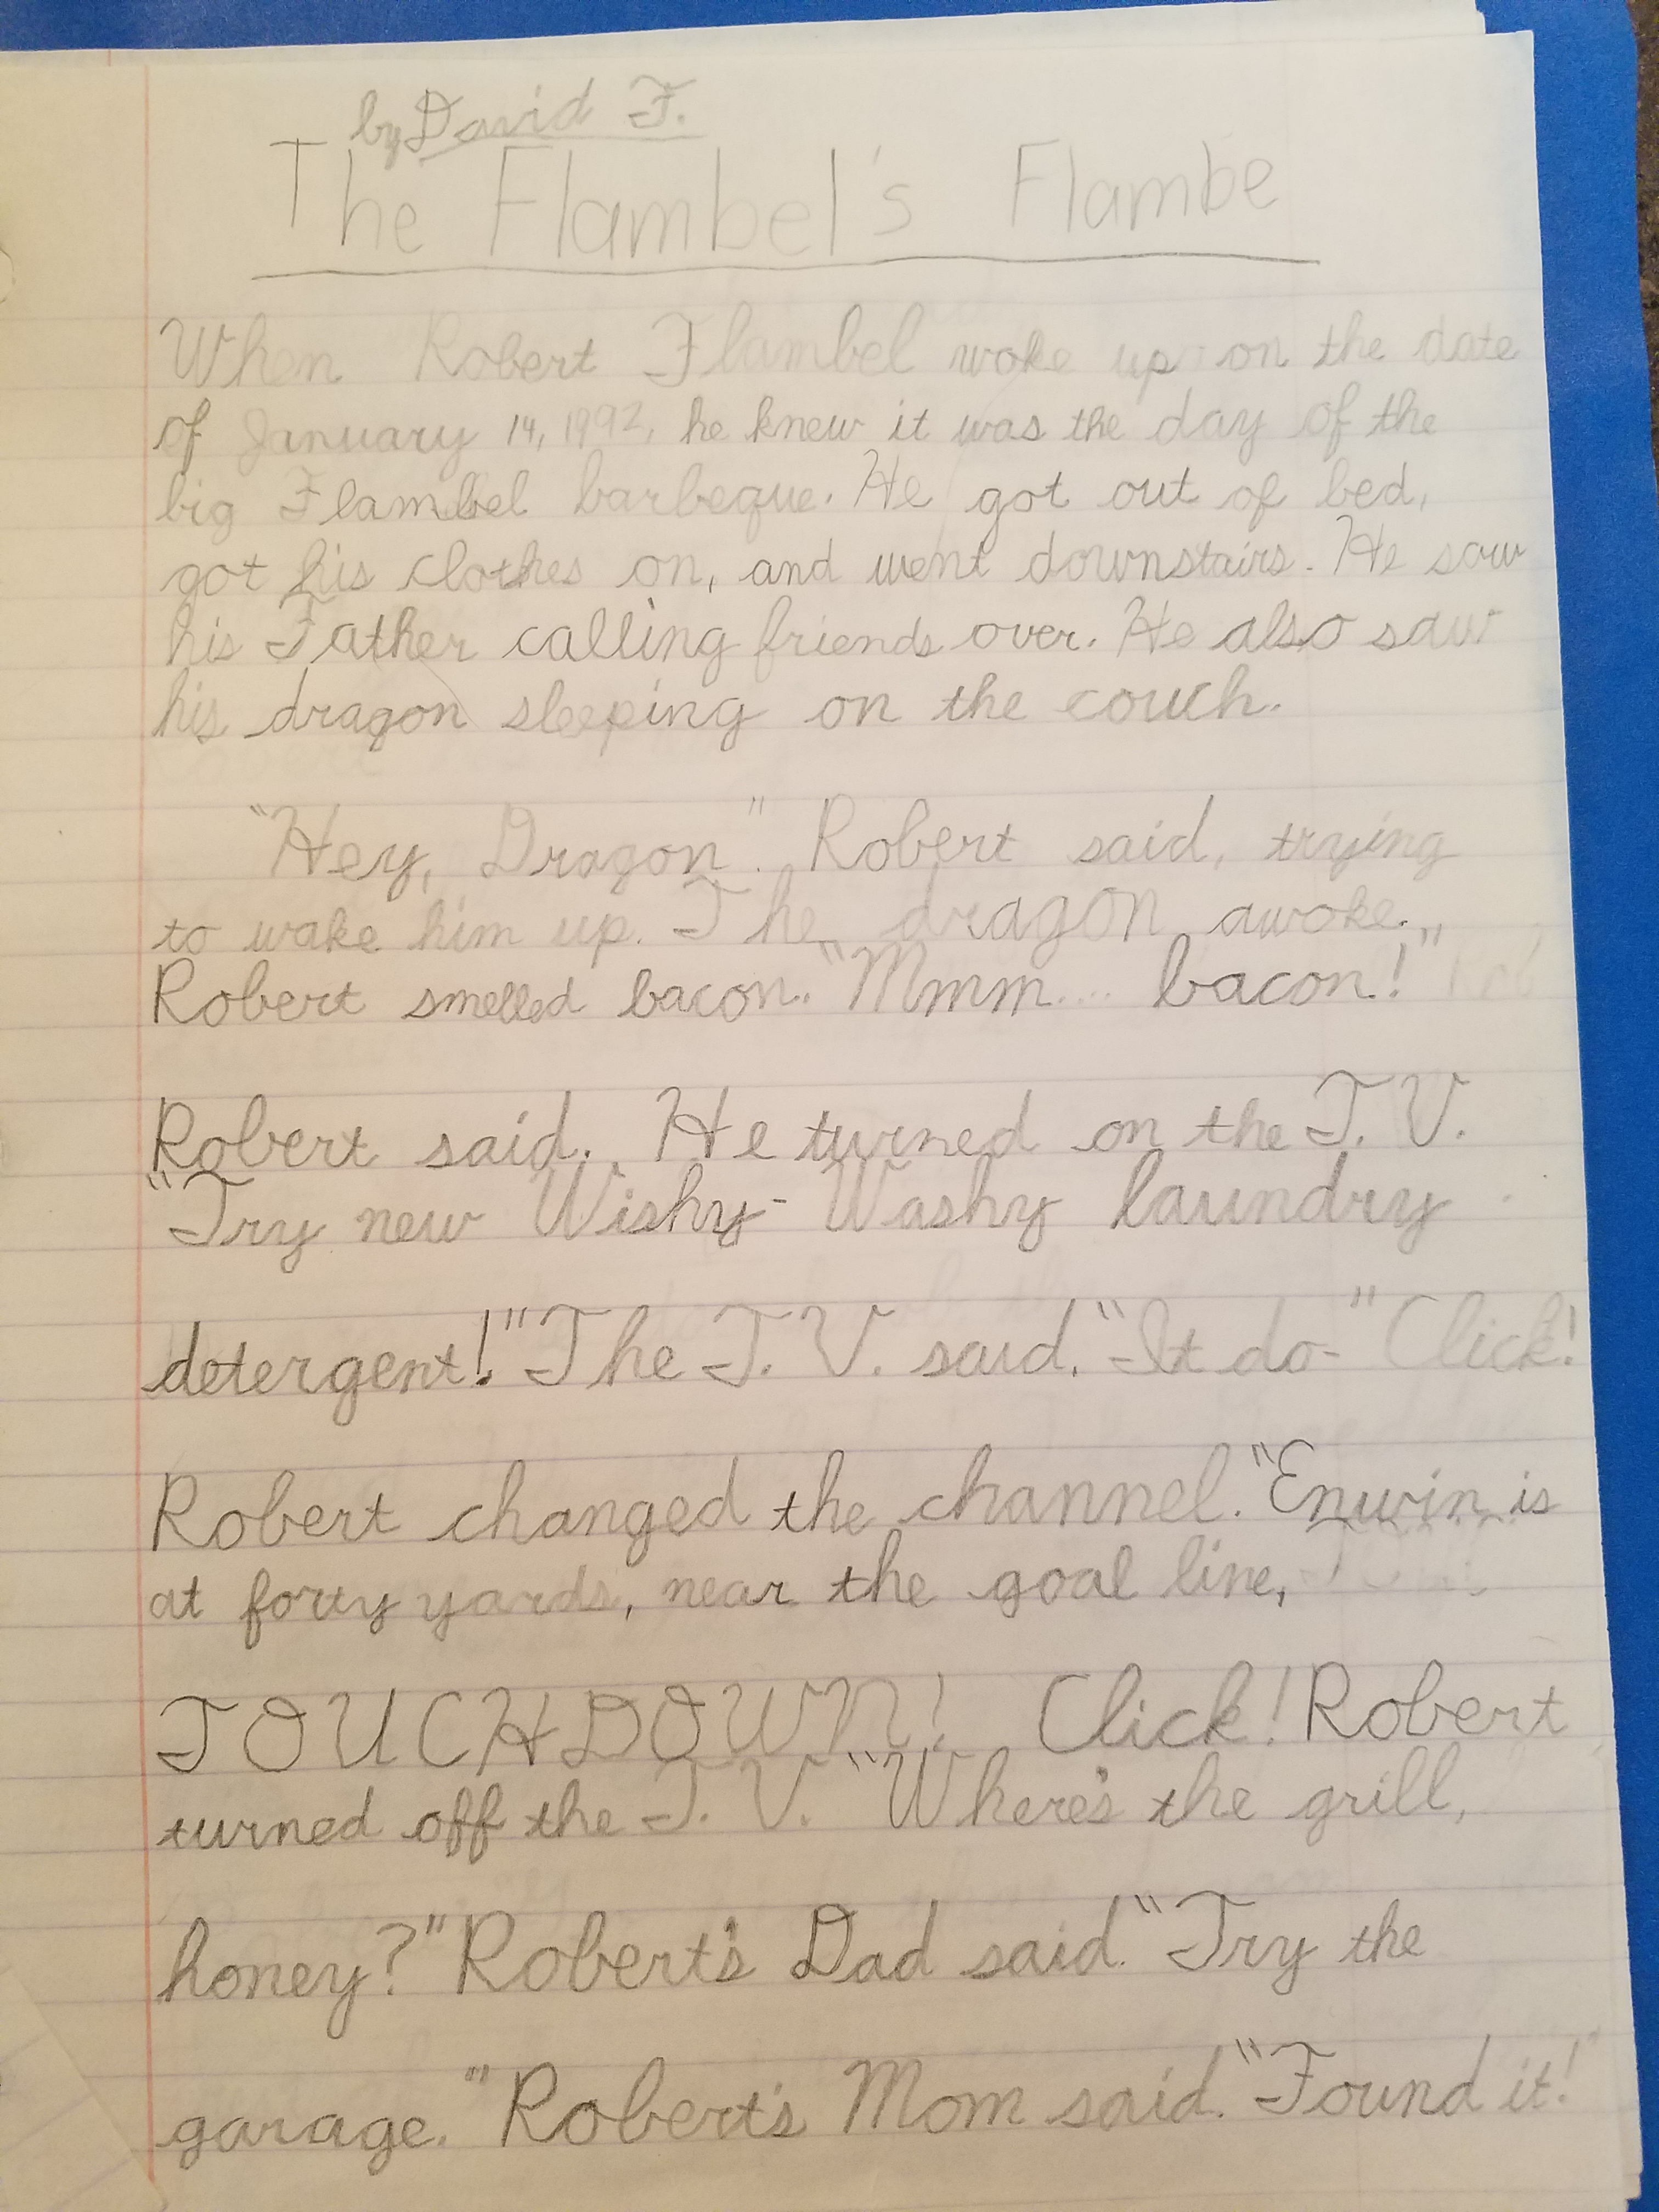 by David F.
The Flambel's Flambe
When Robert Flambel woke up on the date
of January 14, 1992, he knew it was the day of the
big Flambel barbeque. He got out of bed,
got his clothes on, and went downstairs. He saw
his Father calling friends over. He also saw
his dragon sleeping on the couch.
"Hey, Dragon". Robert said, trying
to wake him up. The dragon awoke.
Robert smelled bacon. "Mmm.... bacon!"
Robert said. He turned on the T.V.
"Try new Wishy-Washy laundry
detergent!" The T.V. said. "It do-" Click!
Robert changed the channel. "Enwin is
at forty yards, near the goal line,
TOUCHDOWN! Click! Robert
turned off the T.V. "Where's the grill,
honey?" Robert's Dad said. "Try the
garage." Robert's Mom said. "Found it!"